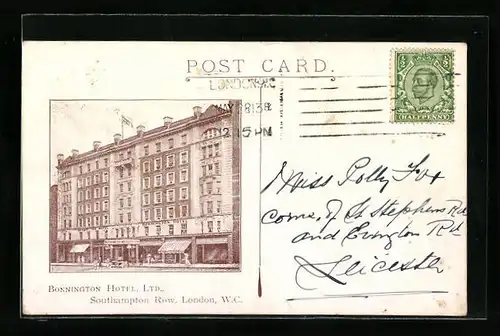 POST CARD.
LONDON.W.C
12.15 PM
HALFPENNY
Miss Polly Fox
Corner of St Stephens Rd
and Evington Rd
Leicester
BONNINGTON HOTEL, LTD.,
SOUTHAMPTON ROW, LONDON, W.C.